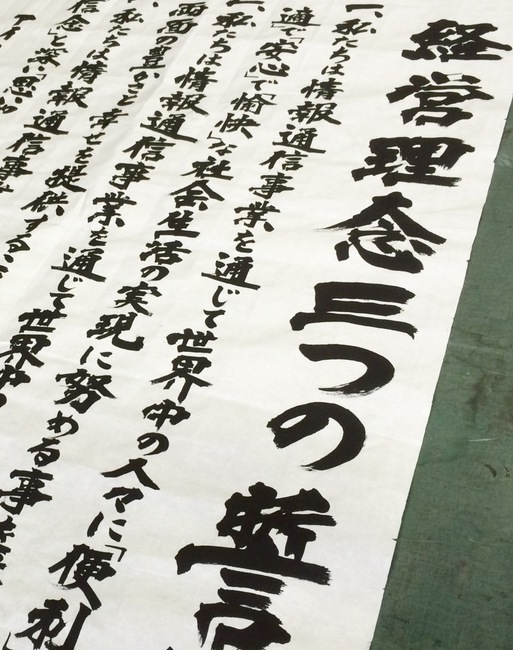 経営理念三つの誓
一、私たちは情報通信事業を通じて世界中の人々に「便利
適で「安心」で「愉快」な社会生活の実現に努める事を
一、私たちは情報通信事業を通じて世界中
両面の豊かさと幸せを提供する
、私たちは情報通信事
信念」と深い「思い